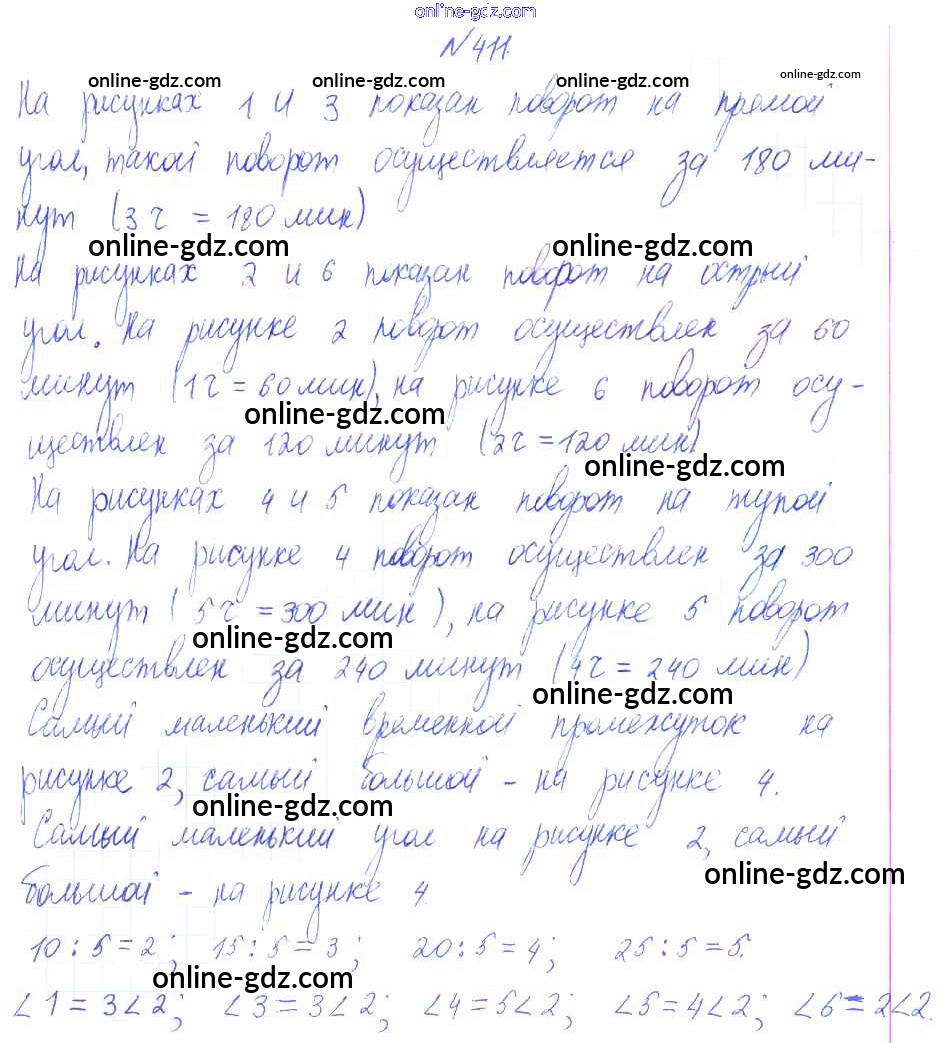 online-gdz.com
№ 411.
online-gdz.com online-gdz.com online-gdz.com online-gdz.com
На рисунках 1 и 3 показан поворот на прямой
угол, такой поворот осуществляется за 180 ми-
нут (3 ч = 180 мин)
online-gdz.com online-gdz.com
На рисунках 2 и 6 показан поворот на острый
угол. На рисунке 2 поворот осуществлен за 60
минут (1 ч = 60 мин), на рисунке 6 поворот осу-
online-gdz.com
ществлен за 120 минут (2 ч = 120 мин)
online-gdz.com
На рисунках 4 и 5 показан поворот на тупой
угол. На рисунке 4 поворот осуществлен за 300
минут (5 ч = 300 мин), на рисунке 5 поворот
online-gdz.com
осуществлен за 240 минут (4 ч = 240 мин)
online-gdz.com
Самый маленький временной промежуток на
рисунке 2, самый большой - на рисунке 4.
online-gdz.com
Самый маленький угол на рисунке 2, самый
online-gdz.com
большой - на рисунке 4.
10 : 5 = 2; 15 : 5 = 3; 20 : 5 = 4; 25 : 5 = 5.
online-gdz.com
∠1 = 3∠2; ∠3 = 3∠2; ∠4 = 5∠2; ∠5 = 4∠2; ∠6 = 2∠2.